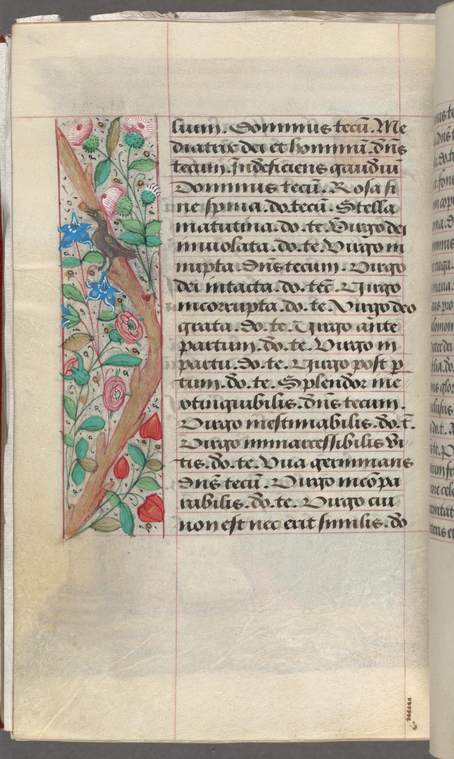 lium. Dominus tecū. Me
diatrix dei et hominū. dn̄s
tecum. Indeficiens gaudiū
Dominus tecū. Rosa si
ne spina. do. tecū. Stella
matutina. do. te. Virgo dei
inuiolata. do. te. Virgo in
nupta. dn̄s tecum. Virgo
dei intacta. do. tēc. Virgo
incorrupta. do. te. Virgo deo
grata. do. te. Virgo ante
partum. do. te. Virgo in
partu. do. te. Virgo post p
tum. do. te. Splendor ine
xtinguibilis. dn̄s tecum.
Virgo inestimabilis. do. t.
Virgo immarcessibilis vi
tis. do. te. Vua germinans
dn̄s tecū. Virgo incōpa
rabilis. do. te. Virgo cui
non est nec erit similis. do